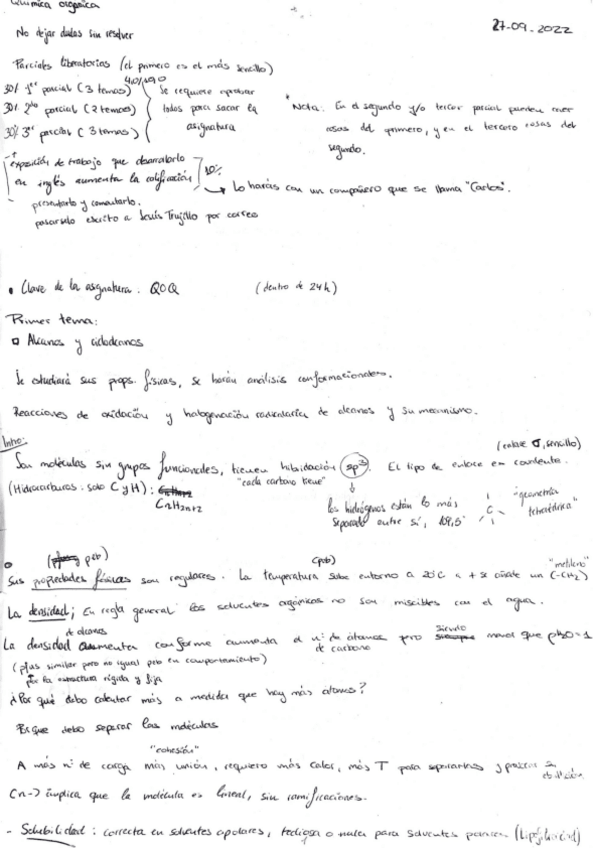 Química orgánica
27-09-2022
No dejar dudas sin resolver
Parciales liberatorios (el primero es el más sencillo)
30% 1er parcial (3 temas)
30% 2do parcial (2 temas)
30% 3er parcial (3 temas)
Se requiere aprobar
todos para sacar la
asignatura
*Nota: En el segundo y/o tercer parcial pueden caer
cosas del primero, y en el tercero cosas del
segundo.
exposición de trabajo que desarrollarlo
en inglés aumenta la calificación
10%
presentarlo y comentarlo.
Lo harás con un compañero que se llama "Carlos".
pasarselo escrito a Jesús Trujillo por correo
• Clave de la asignatura: QOQ (dentro de 24h)
Primer tema:
Alcanos y cicloalcanos
Se estudiará sus props. físicas, se harán análisis conformacionales.
Reacciones de oxidación y halogenación radicalaria de alcanos y su mecanismo.
Intro:
(enlace σ, sencillo)
Son moléculas sin grupos funcionales, tienen hibridación sp3. El tipo de enlace es covalente.
(Hidrocarburos: solo C y H): "cada carbono tiene"
CnH2n+2
los hidrógenos están lo más
separado entre sí, 109,5°
C
"geometría
tetraédrica"
(peb)
(peb)
"metileno"
Sus propiedades físicas son regulares. La temperatura sube entorno a 20°C si se añade un (-CH2)
La densidad; En regla general los solventes orgánicos no son miscibles con el agua.
de alcanos
La densidad aumenta conforme aumenta el nº de átomos pero siendo menor que ρH2O=1
de carbono
(pfus similar pero no igual peb en comportamiento)
por la estructura rígida y fija
¿Por qué debo calentar más a medida que hay más átomos?
Porque debo separar las moléculas
"cohesión"
A más nº de carga más unión, requiero más calor, más T para separarlas y
ebullición
Cn-> implica que la molécula es lineal, sin ramificaciones.
- Solubilidad: correcta en solventes apolares, tediosa o nula para solventes (lipofilicidad)